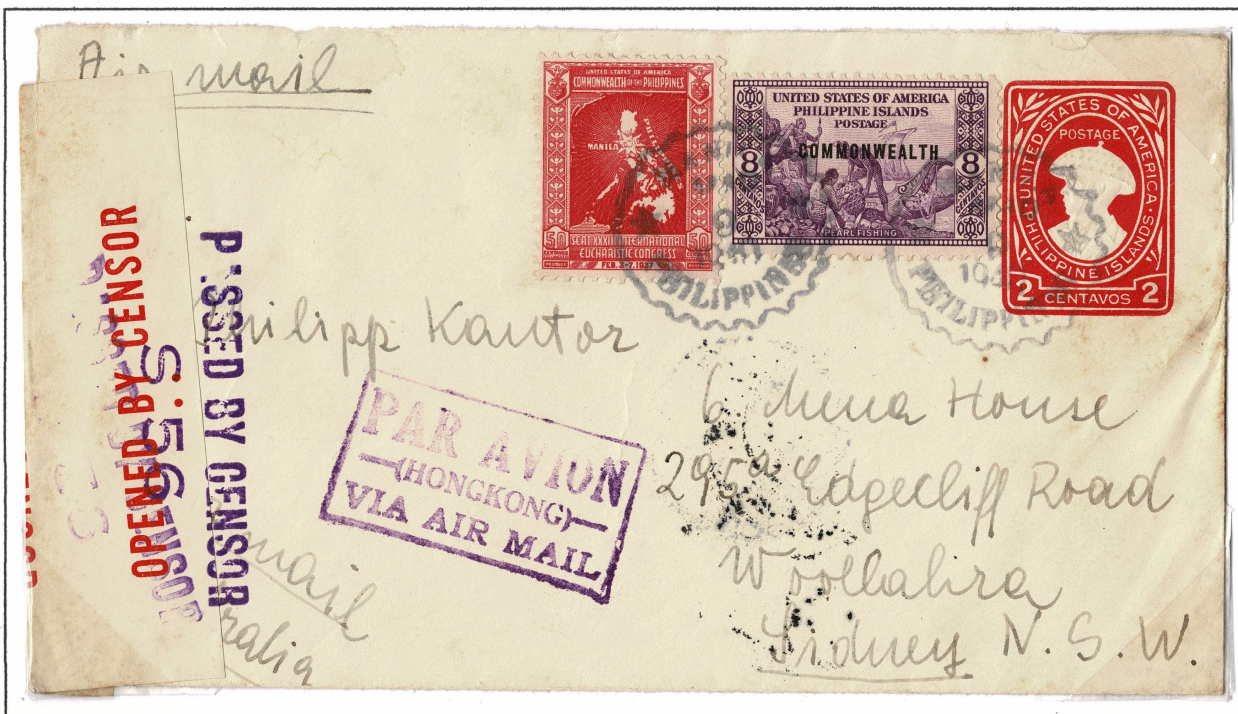 Air mail
UNITED STATES OF AMERICA
COMMONWEALTH OF THE PHILIPPINES
MANILA
50 SEAT XXXIII INTERNATIONAL 50
EUCHARISTIC CONGRESS
FEB. 3-7, 1937
UNITED STATES OF AMERICA
PHILIPPINE ISLANDS
POSTAGE
COMMONWEALTH
8 8
PEARL FISHING
UNITED STATES OF AMERICA
POSTAGE
PHILIPPINE ISLANDS
2 CENTAVOS 2
PHILIPPINES
PHILIPPIN
OPENED BY CENSOR
PASSED BY CENSOR
S. 56
Philipp Kantor
6 Mena House
295a Edgecliff Road
Woollahra
Sidney N. S. W.
PAR AVION
(HONGKONG)
VIA AIR MAIL
mail
ralia